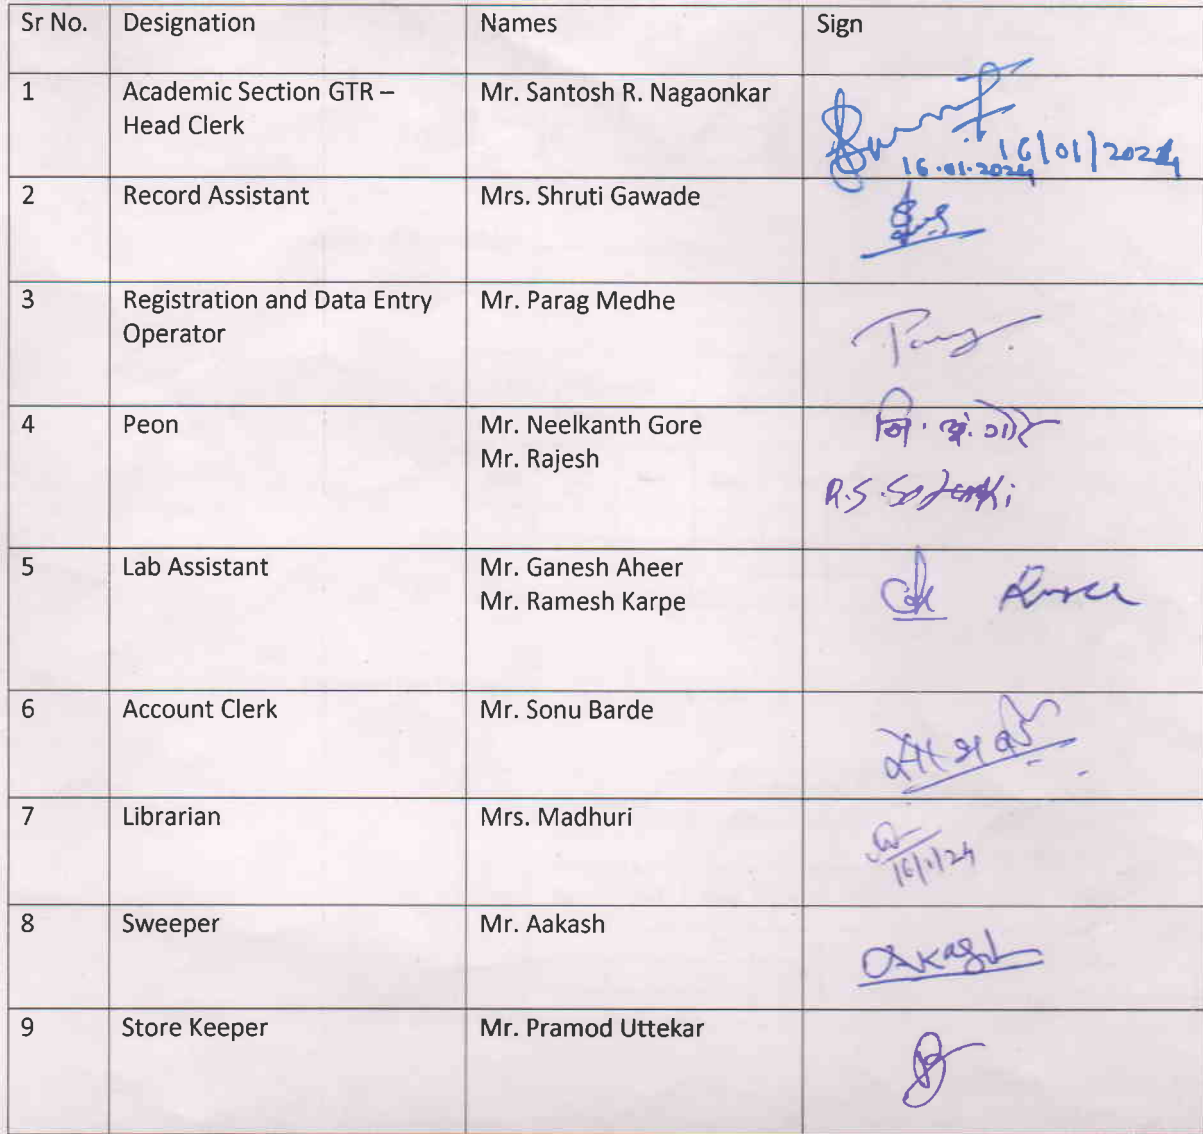 Sr No. Designation Names Sign
1 Academic Section GTR – Mr. Santosh R. Nagaonkar
Head Clerk
16.01.2024 16/01/2024
2 Record Assistant Mrs. Shruti Gawade
3 Registration and Data Entry Mr. Parag Medhe
Operator
Parag.
4 Peon Mr. Neelkanth Gore
नि. कुं. गोरे
Mr. Rajesh
R.S. Solanki
5 Lab Assistant Mr. Ganesh Aheer
Mr. Ramesh Karpe
6 Account Clerk Mr. Sonu Barde
7 Librarian Mrs. Madhuri
16/1/24
8 Sweeper Mr. Aakash
Akash
9 Store Keeper Mr. Pramod Uttekar